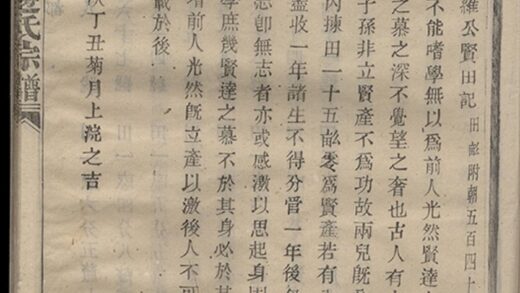 羅公賢田記 田畝附朝五百四十
不能嗜學無以爲前人光然賢達
之慕之深不覺望之奢也古人有
子孫非立賢產不爲功故兩兒既
內揀田一十五畝零爲賢產若有
盡收一年諸生不得分管一年後
志卽無志者亦或感激以思起身
學庶幾賢達之慕不於其身必於其
者前人光然既立產以激後人不可
載於後
丁丑菊月上浣之吉
氏宗譜